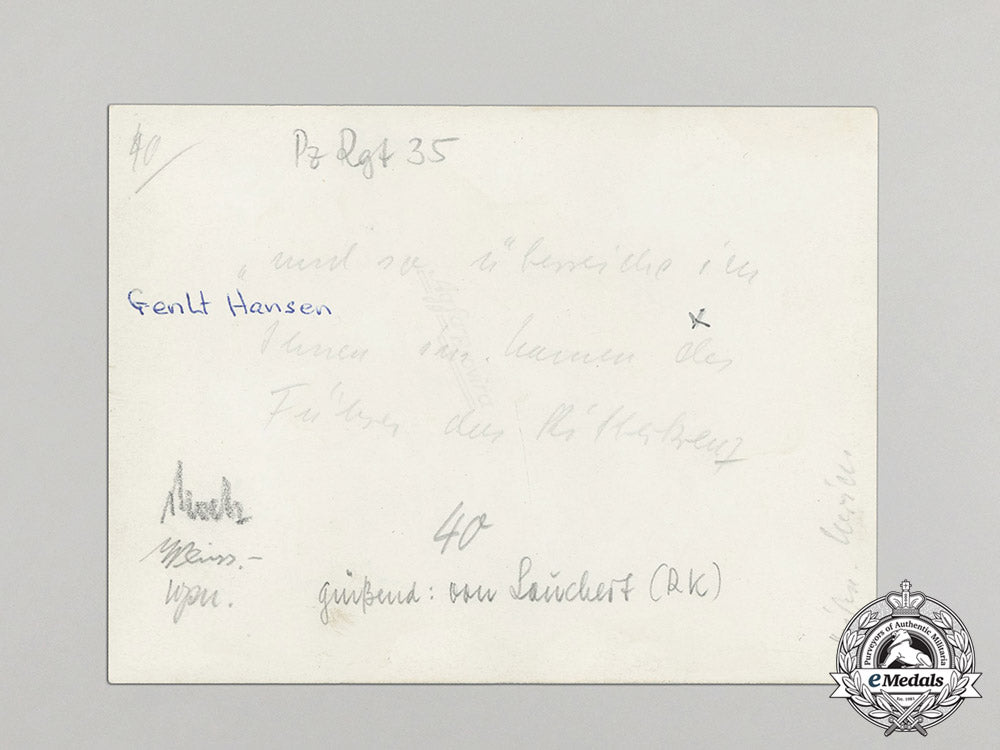 40
Pz Rgt 35
„und so überreiche ich
Genlt Hansen
x
Ihnen im Namen des
Führers das Ritterkreuz
40
grüßend: von Lauchert (RK)
Purveyors of Authentic Militaria
eMedals
Est. 1985